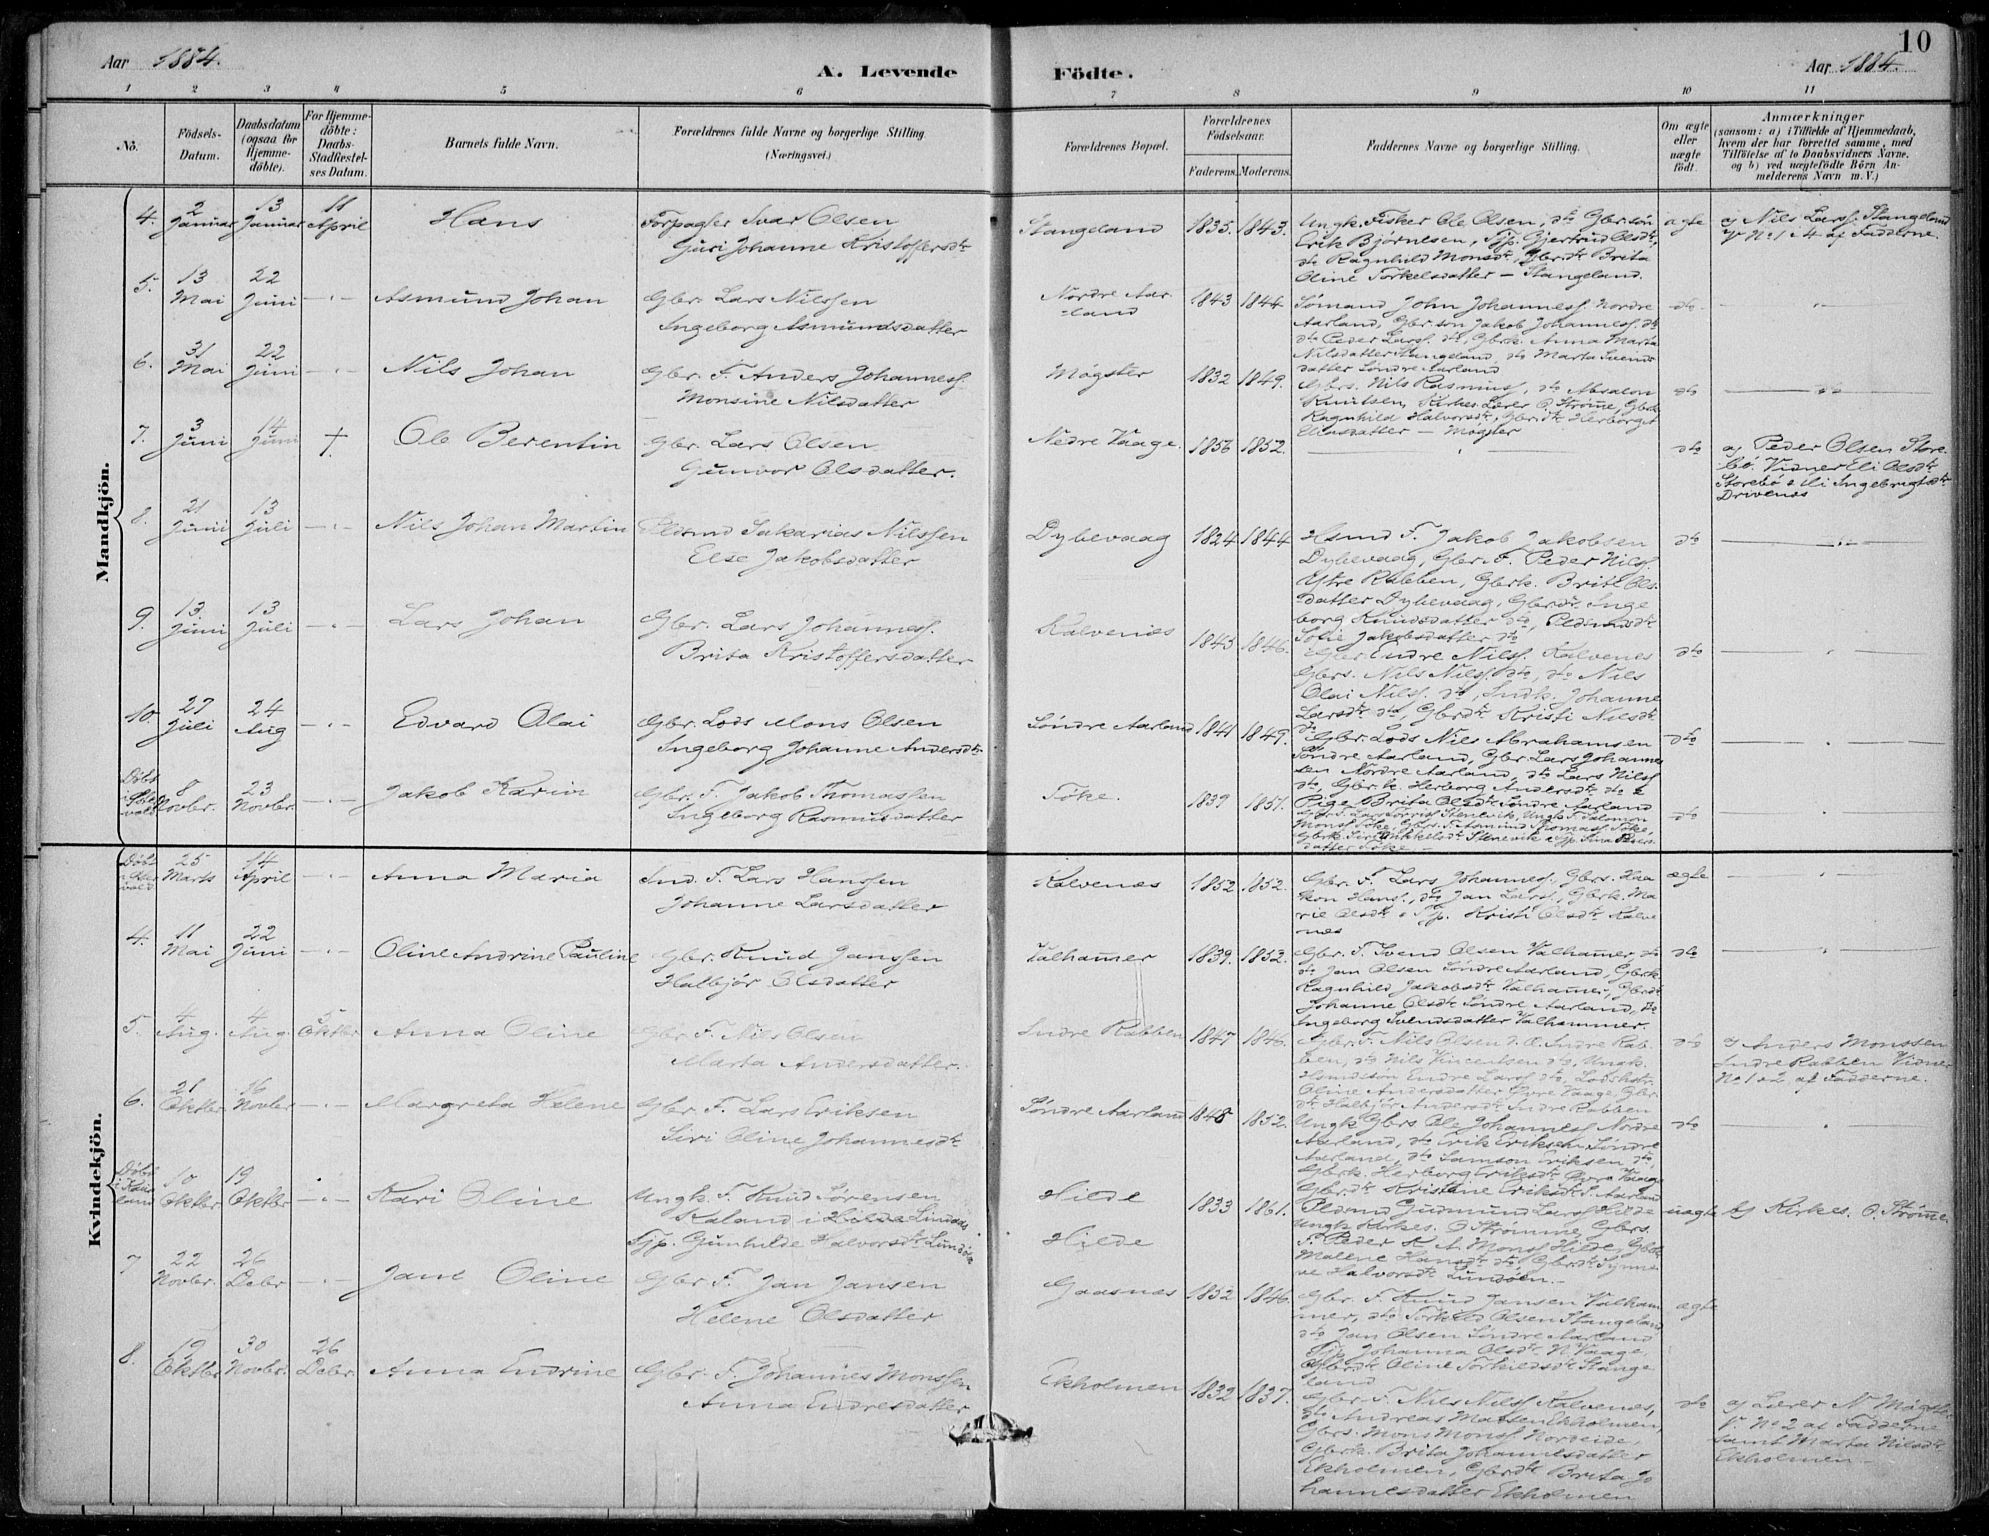 10
Aar 1884.
A. Levende
Födte.
Aar 1884.
1 2 3 4 5 6 7 8 9 10 11
No.
Födsels-
Datum.
Daabsdatum
(ogsaa for
Hjemme-
döbte).
For Hjemme-
döbte:
Daabs-
Stadfæstel-
ses Datum.
Barnets fulde Navn.
Forældrenes fulde Navne og borgerlige Stilling
(Næringsvei.)
Forældrenes Bopæl.
Forældrenes
Födselsaar.
Faderens.
Moderens.
Faddernes Navne og borgerlige Stilling.
Om ægte
eller
uægte
födt.
Anmærkninger
(saasom: a) i Tilfælde af Hjemmedaab,
hvem der har forrettet samme, med
Tilföielse af to Daabsvidners Navne,
og b) ved uægtefödte Börn An-
melderens Navn m. V.)
Mandkjön.
4.
2
Januar
13
Januar
11
April
Hans
Forpagter Ivar Olsen
Guri Johanne Kristoffersdtr
Stangeland
1835. 1843.
Ungk. Fisker Ole Olsen, dto Gbr.sön
Erik Björnesen, Tjp. Gjertrud Olsdtr,
dto Ragnhild Monsdtr, Gbr.dtr Brita
Oline Torkelsdatter — Stangeland.
ægte
a) Nils Larss. Stangeland
V. No 1 & 4 af Fadderne.
5.
13
Mai
22
Juni
Asmund Johan
Gbr. Lars Nilssen
Ingeborg Asmundsdatter
Nordre Aar-
land
1843 1844
Sömand John Johanness. Nordre
Aarland, Gbr.sön Jakob Johanness. dto
dto Peder Larss. dto, Gbrk. Anna Marta
Nilsdatter Stangeland, dto Marta Svends
datter Söndre Aarland
dto
6.
31
Mai
22
Juni
Nils Johan
Gbr. F. Anders Johanness.
Monsine Nilsdatter
Mögster
1832 1849.
Gbrs. Nils Rasmuss, dto Absalon
Knutsen, Kirkes. Lærer O Ströme, Gbrk
Ragnhild Halvorsdtr, Gbrdtr Herborget
Eliasdatter — Mögster
dto
7.
3
Juni
14
Juni
†
Ole Berentin
Gbr. Lars Olsen
Gunvor Olsdatter.
Nedre Vaage.
1856 1852.
dto
a) Peder Olsen Store
bö. Vidner Eli Olsdtr
Storebö & Eli Ingebrigtsdtr
Drivenes
8.
21
Juni
13
Juli
Nils Johan Martin
Pldsmd Sakarias Nilssen
Else Jakobsdatter
Dybevaag
1824 1844
Hsmd F. Jakob Jakobsen
Dybevaag, Gbr. F. Peder Nilss.
Ytre Rabben, Gbrk. Brite Ols
datter Dybevaag, Gbrdtr. Inge
borg Knudsdatter dto, Pldsmdsdtr
Sofie Jakobsdatter dto
dto
9.
13
Juni
13
Juli
Lars Johan
Gbr. Lars Johanness.
Brita Kristoffersdatter
Kalvenes
1843 1846.
Gbr. Endre Nilss. Kalvenes
Gbrs. Nils Nilss. dto, dto Nils
Olai Nilss. dto, Indk. Johanne
Larsdtr. dto, Gbrdtr Kristi Nilsdtr
dto
dto
10.
27
Juli
24
Aug
Edvard Olai
Gbr. Lods Mons Olsen
Ingeborg Johanne Andersdtr
Söndre Aarland
1841 1849.
Gbr. Lods Nils Abrahamsen
Söndre Aarland, Gbr. Lars Johannes
sen Nordre Aarland, dto Lars Nilss
dto, Gbrk. Herborg Andersdtr dto &
Pige Brita Olsdtr Söndre Aarland
dto
Döbt
8
Novbr.
23
Novbr.
Jakob Karin
Gbr. F. Jakob Thomassen
Ingeborg Rasmusdatter
Töke.
1839 1851.
datter Töke —
dto
Kvindekjön.
Döbt
25
Marts
14
April
Anna Maria
Ind. F. Lars Hanssen
Johanne Larsdatter
Kalvenes
1852 1852.
Gbr. F. Lars Johanness., Gbrs. Haa
kon Hanss., dto Jan Larss., Gbrk. Ma
rie Olsdtr & Tjp. Kristi Olsdtr Kalve
nes
ægte
4.
11
Mai
22
Juni
Oline Andrine Pauline
Gbr. Knud Janssen
Halbjör Olsdatter
Valhamer
1839. 1852.
Gbr. F. Svend Olsen Valhamer, dto
dto Jan Olsen Söndre Aarland, Gbrk
Ragnhild Jakobsdtr Valhamer, Gbrdtr
Johanne Olsdtr Söndre Aarland, Do
Ingeborg Svendsdatter Valhammer.
dto
5.
4
Aug.
4
Aug.
5
Oktbr
Anna Oline
Gbr. F. Nils Olsen
Marta Andersdatter.
Indre Rabben
1847 1846.
Gbr. F. Nils Olsen d. Æ. Indre Rab
ben, dto Nils Vincentsen dto, Ungk.
Husmdsön Endre Larss dto, Lodshstr.
Oline Andersdatter Övre Vaage, Gbr.
dtr Halbjör Andersdtr Indre Rabben
dto
a) Anders Monssen
Indre Rabben Vidner
No 1 & 2 af Fadderne.
6.
21
Oktbr
16
Novbr
Margreta Helene
Gbr. F. Lars Eriksen
Siri Oline Johannesdtr
Söndre Aarland
1848 1852.
Ungk Gbrs Ole Johanness Nordre
Aarland, dto Erik Eriksen Söndre
Aarland, dto Samson Eriksen dto,
Gbrk. Herborg Eriksdtr Övre Vaage
Gbrdtr Kristine Eriksdtr S. Aarland
dto
Döbt
10
Oktbr
19
Oktbr
Kari Oline
Ungk. F. Knud Sörensen
Kaland i Lindaas
Tjp. Gunhilde Halvorsdtr Lundöen
Hilde
Hilde
1833 1861.
Pldsmd Gudmund Larss Hilde
Ungk Kirkes. O Strömme, Gbrs.
F. Peder K. A. Monss Hilde, Gbrk
Malene Hansdtr dto, Gbrdtr Synne
ve Halvorsdtr Lundöen. —
uægte
b) Kirkes. O. Strömme
7
22
Novbr.
26
Debr
Jane Oline
Gbr. F. Jan Jansen
Helene Olsdatter
Gaasnes
1852 1846.
Gbr. F. Knud Jansen Valham
mer, dto Torkild Olsen Stangeland
dto Jan Olsen Söndre Aarland
Tjp Johanna Olsdtr N. Vaage,
Gbrdtr Oline Torkildsdtr Stange
land
ægte
8.
19
Oktbr
30
Novbr.
26
Debr.
Anna Endrine
Gbr. F. Johannes Monssen
Anna Endresdatter
Ekholmen
1832 1837.
Gbr. F. Nils Nilss Kalvenes,
dto Andreas Matsen Ekholmen,
Gbrs. Mons Monss. Nordeide,
Gbrk. Brita Johannesdatter
Ekholmen, Gbrdtr Brita Jo
hannesdatter Ekholmen
dto
a) Lærer N. Mögster
V. No 2 af Fadderne
samt Marta Nilsdtr
Ekholmen —